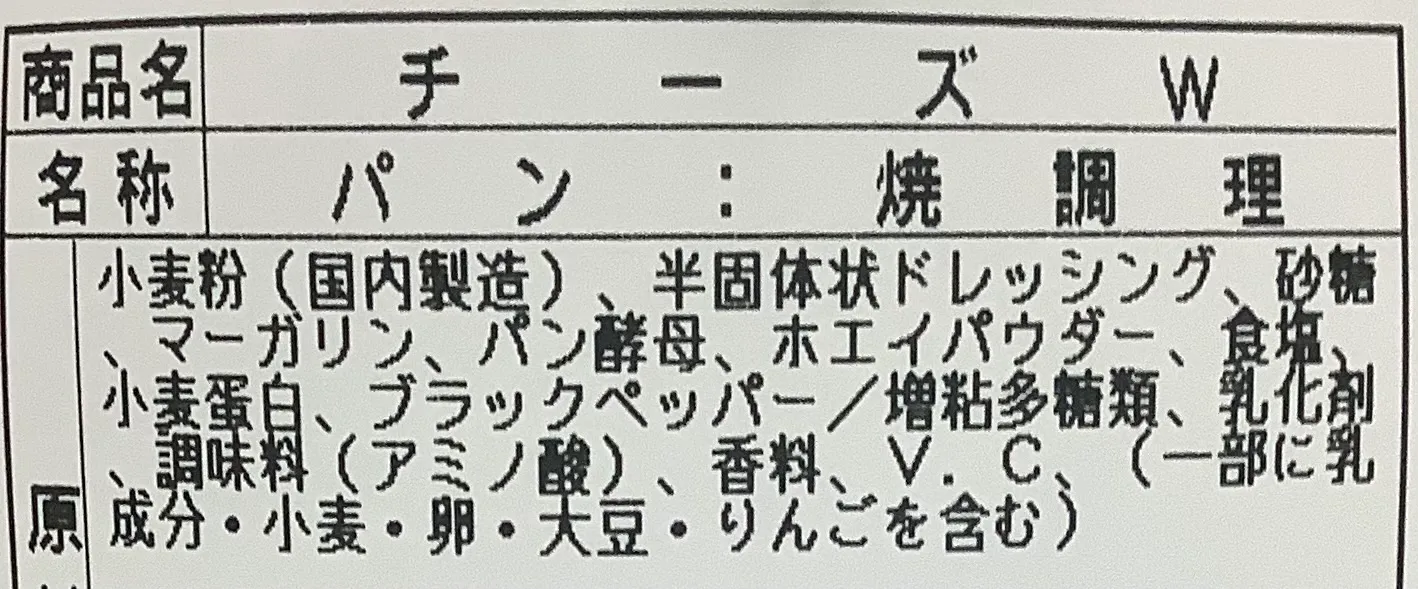 商品名 チーズW
名称 パン：焼調理
小麦粉（国内製造）、半固体状ドレッシング、砂糖
、マーガリン、パン酵母、ホエイパウダー、食塩、
小麦蛋白、ブラックペッパー／増粘多糖類、乳化剤
、調味料（アミノ酸）、香料、V．C、（一部に乳
成分・小麦・卵・大豆・りんごを含む）
原